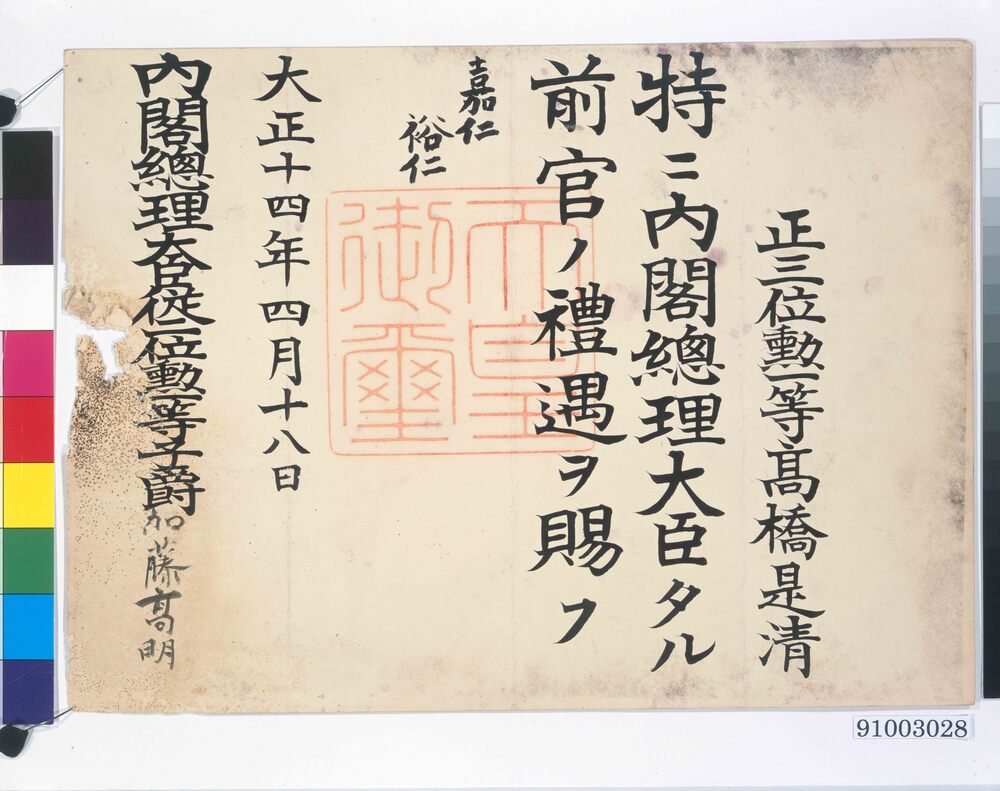 正三位勲一等髙橋是清
特ニ内閣總理大臣タル
前官ノ禮遇ヲ賜フ
嘉仁
裕仁
天皇御璽
大正十四年四月十八日
内閣總理大臣従二位勲一等子爵加藤髙明
91003028